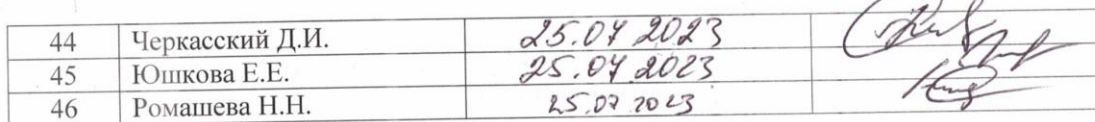 44 Черкасский Д.И. 25.07 2023
45 Юшкова Е.Е. 25.07 2023
46 Ромашева Н.Н. 25.07 2023